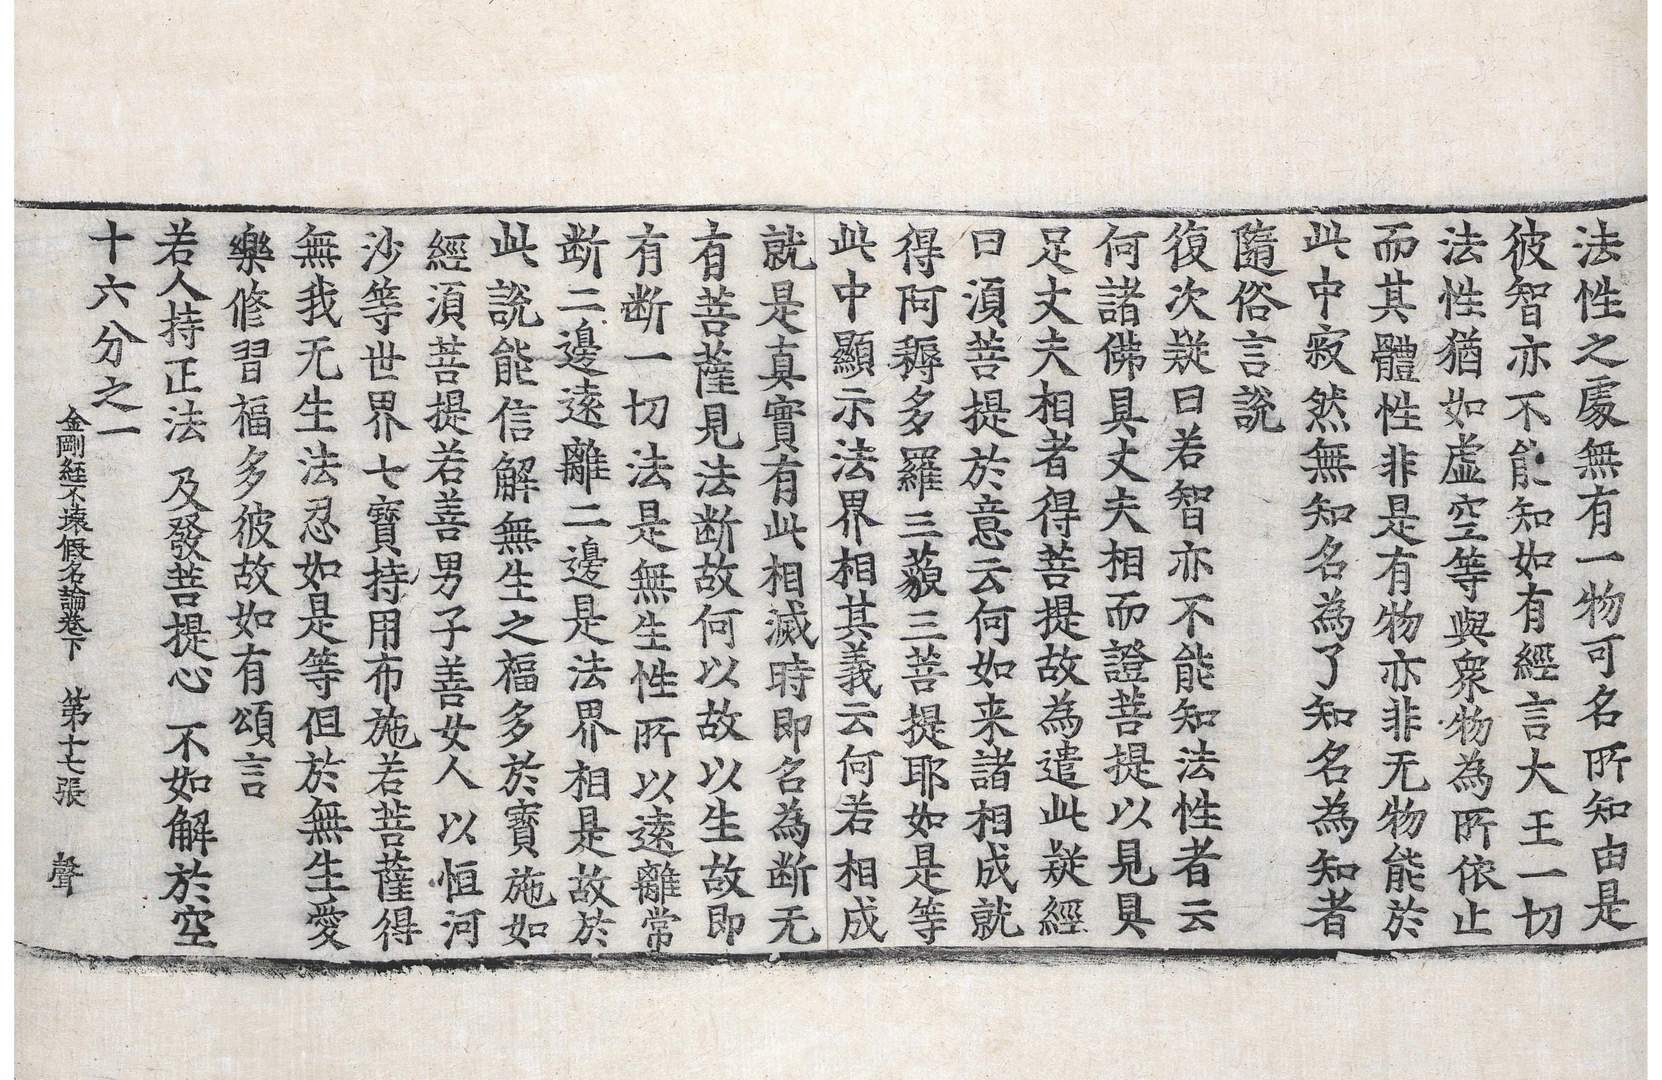 法性之處無有一物可名所知由是
彼智亦不能知如有經言大王一切
法性猶如虛空等與衆物為所依止
而其體性非是有物亦非无物能於
此中寂然無知名為了知名為知者
隨俗言說
復次疑曰若智亦不能知法性者云
何諸佛具丈夫相而證菩提以見具
足丈夫相者得菩提故為遣此疑經
曰須菩提於意云何如来諸相成就
得阿耨多羅三藐三菩提耶如是等
此中顯示法界相其義云何若相成
就是真實有此相滅時即名為断无
有菩薩見法断故何以故以生故即
有断一切法是無生性所以遠離常
断二邊遠離二邊是法界相是故於
此說能信解無生之福多於寶施如
經須菩提若善男子善女人以恒河
沙等世界七寶持用布施若菩薩得
無我无生法忍如是等但於無生愛
樂修習福多彼故如有頌言
若人持正法 及發菩提心 不如解於空
十六分之一
金剛經不壞假名論卷下 第十七張 聲